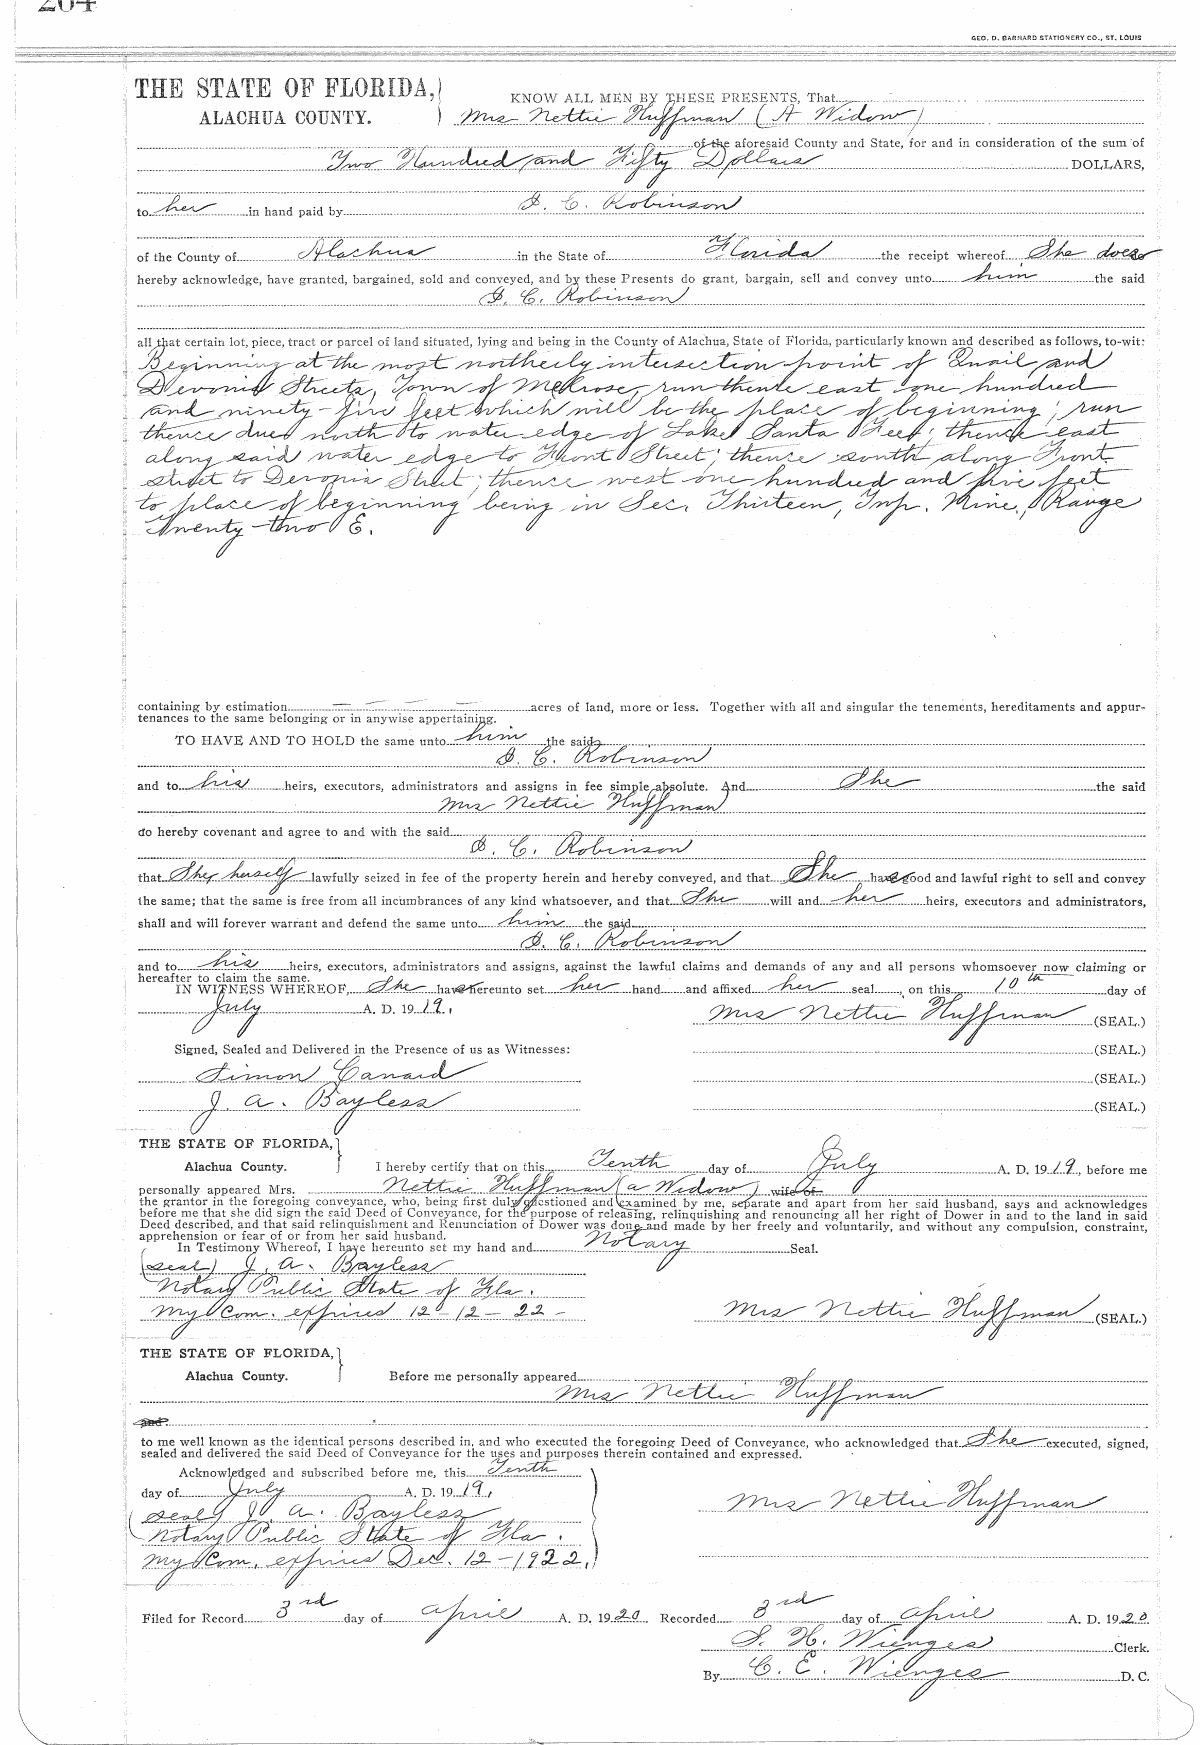 GEO. D. BARNARD STATIONERY CO., ST. LOUIS
THE STATE OF FLORIDA,
ALACHUA COUNTY.
KNOW ALL MEN BY THESE PRESENTS, That
Mrs Nettie Huffman (A Widow)
of the aforesaid County and State, for and in consideration of the sum of
Two Hundred and Fifty Dollars DOLLARS,
to her in hand paid by C. Robinson
of the County of Alachua in the State of Florida the receipt whereof She does
hereby acknowledge, have granted, bargained, sold and conveyed, and by these Presents do grant, bargain, sell and convey unto him the said
C. Robinson
all that certain lot, piece, tract or parcel of land situated, lying and being in the County of Alachua, State of Florida, particularly known and described as follows, to-wit:
Beginning at the most northerly intersection point of Quail and
Devonia Streets, Town of Melrose, run thence east one hundred
and ninety-five feet which will be the place of beginning; run
thence due north to water edge of Lake Santa Fee; thence east
along said water edge to Front Street; thence south along Front
street to Devonia Street; thence west one hundred and five feet
to place of beginning being in Sec. Thirteen, Tnp. Nine, Range
Twenty-two E.
containing by estimation — — — — acres of land, more or less. Together with all and singular the tenements, hereditaments and appur-
tenances to the same belonging or in anywise appertaining.
TO HAVE AND TO HOLD the same unto him the said
C. Robinson
and to his heirs, executors, administrators and assigns in fee simple absolute. And She the said
Mrs Nettie Huffman
do hereby covenant and agree to and with the said
C. Robinson
that She, herself lawfully seized in fee of the property herein and hereby conveyed, and that She has good and lawful right to sell and convey
the same; that the same is free from all incumbrances of any kind whatsoever, and that She will and her heirs, executors and administrators,
shall and will forever warrant and defend the same unto him the said
C. Robinson
and to his heirs, executors, administrators and assigns, against the lawful claims and demands of any and all persons whomsoever now claiming or
hereafter to claim the same.
IN WITNESS WHEREOF, She has hereunto set her hand and affixed her seal, on this 10th day of
July A. D. 1919. Mrs Nettie Huffman (SEAL.)
Signed, Sealed and Delivered in the Presence of us as Witnesses: (SEAL.)
Simon Canard (SEAL.)
J. A. Bayless (SEAL.)
THE STATE OF FLORIDA,
Alachua County. I hereby certify that on this Tenth day of July A. D. 1919, before me
personally appeared Mrs. Nettie Huffman (a Widow) wife of
the grantor in the foregoing conveyance, who, being first duly questioned and examined by me, separate and apart from her said husband, says and acknowledges
before me that she did sign the said Deed of Conveyance, for the purpose of releasing, relinquishing and renouncing all her right of Dower in and to the land in said
Deed described, and that said relinquishment and Renunciation of Dower was done and made by her freely and voluntarily, and without any compulsion, constraint,
apprehension or fear of or from her said husband.
In Testimony Whereof, I have hereunto set my hand and Notary Seal.
(seal) J. A. Bayless
Notary Public State of Fla.
My Com. expires 12-12-22- Mrs Nettie Huffman (SEAL.)
THE STATE OF FLORIDA,
Alachua County. Before me personally appeared
Mrs Nettie Huffman
and
to me well known as the identical persons described in, and who executed the foregoing Deed of Conveyance, who acknowledged that She executed, signed,
sealed and delivered the said Deed of Conveyance for the uses and purposes therein contained and expressed.
Acknowledged and subscribed before me, this Tenth
day of July A. D. 1919, Mrs Nettie Huffman
(seal) J. A. Bayless
Notary Public State of Fla.
My Com. expires Dec. 12-1922.
Filed for Record 3rd day of April A. D. 1920 Recorded 3rd day of April A. D. 1920
S. H. Wienges Clerk.
By C. E. Wienges D. C.